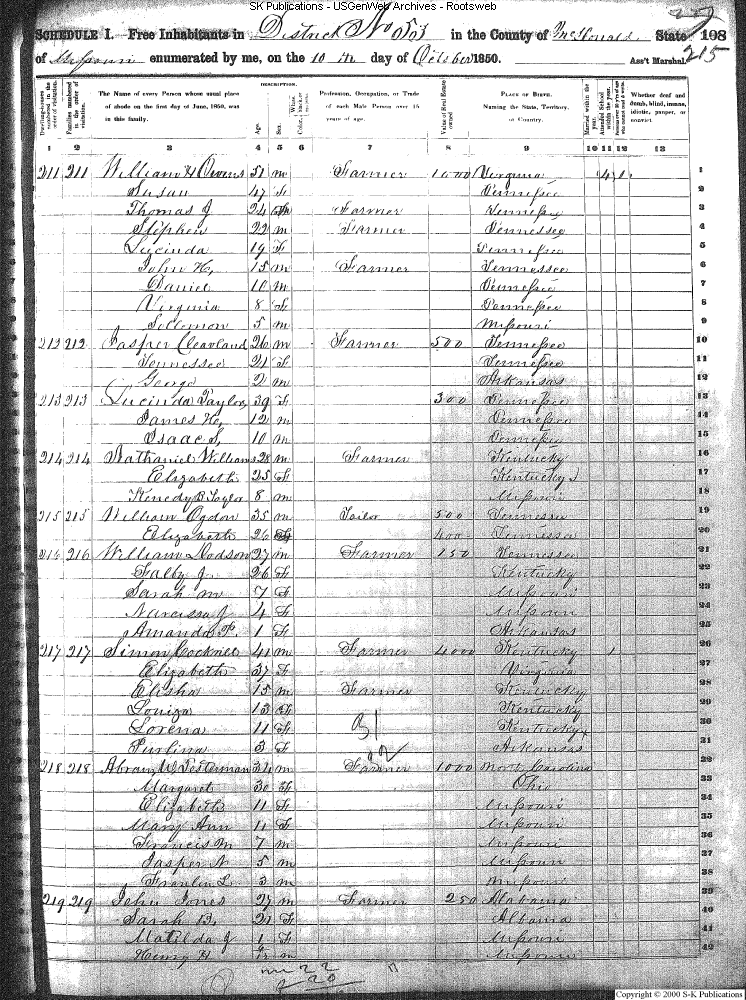 SK Publications - USGenWeb Archives - Rootsweb
SCHEDULE I. Free Inhabitants in District No in the County of McDonald State 198
215
of Missouri enumerated by me, on the 10 th day of October 1850. Ass't Marshal.
Dwelling-houses numbered in the order of visitation.
Families numbered in the order of visitation.
The Name of every Person whose usual place of abode on the first day of June, 1850, was in this family.
DESCRIPTION.
Age. Sex. Color,
Profession, Occupation, or Trade of each Male Person over 15 years of age.
Value of Real Estate owned
PLACE OF BIRTH. Naming the State, Territory, or Country.
Married within the year.
Attended School within the year.
Whether deaf and dumb, blind, insane, idiotic, pauper, or convict.
1 2 3 4 5 6 7 8 9 10 11 12 13
211 211 William H Owens 51 m Farmer 1000 Virginia 1
Susan 47 F Tennessee 2
Thomas J 24 m Farmer Tennessee 3
Stephen 22 m Farmer Tennessee 4
Lucinda 19 F Tennessee 5
John H, 15 m Farmer Tennessee 6
Daniel 10 m Tennessee 7
Virginia 8 F Tennessee 8
Sollomon 5 m Missouri 9
212 212 Jasper Cleavland 26 m Farmer 500 Tennessee 10
Tennessee 21 F Tennessee 11
George 2 m Arkansas 12
213 213 Lucinda Taylor, 39 F 300 Tennessee 13
James H, 12 m Tennessee 14
Isaac S, 10 m Tennessee 15
214 214 Nathaniel Williams 28 m Farmer Kentucky 16
Elizabeth 25 F Kentucky 17
Kenedy B Taylor 8 m Missouri 18
215 215 William Ogdon 35 m Tailor 500 Tennessee 19
Elizabeth 26 F 400 Tennessee 20
216 216 William Dodson 27 m Farmer 150 Tennessee 21
Sally J 26 F Kentucky 22
Sarah M 7 F Missouri 23
Narcissa J 4 F Missouri 24
Amanda P. 1 F Arkansas 25
217 217 Simon Cockrell 41 m Farmer 4000 Kentucky 1 26
Elizabeth 37 F Virginia 27
Elisha 15 m Farmer Kentucky 28
Louiza 13 F Kentucky 29
Lorena 11 F Kentucky 30
Purlina 3 F Arkansas 31
218 218 Abram W Testerman 34 m Farmer 1000 North Carolina 32
Margaret 30 F Ohio 33
Elizabeth 11 F Missouri 34
Mary Ann 11 F Missouri 35
Francis M 7 m Missouri 36
Jasper N 5 m Missouri 37
Franlin L 3 m Missouri 38
219 219 John Jones 27 m Farmer 250 Alabama 39
Sarah 21 F Albama 40
Matilda J 1 F Missouri 41
Henry H m Missouri 42
22
20
Copyright © 2000 S-K Publications